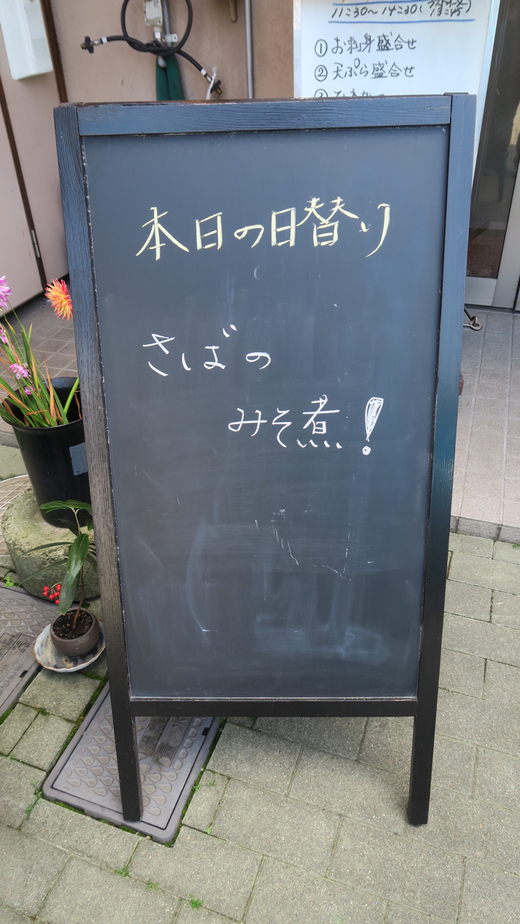 11:30〜14:30(
① お刺身盛合せ
② 天ぷら盛合せ
本日の日替り
さばの
みそ煮!